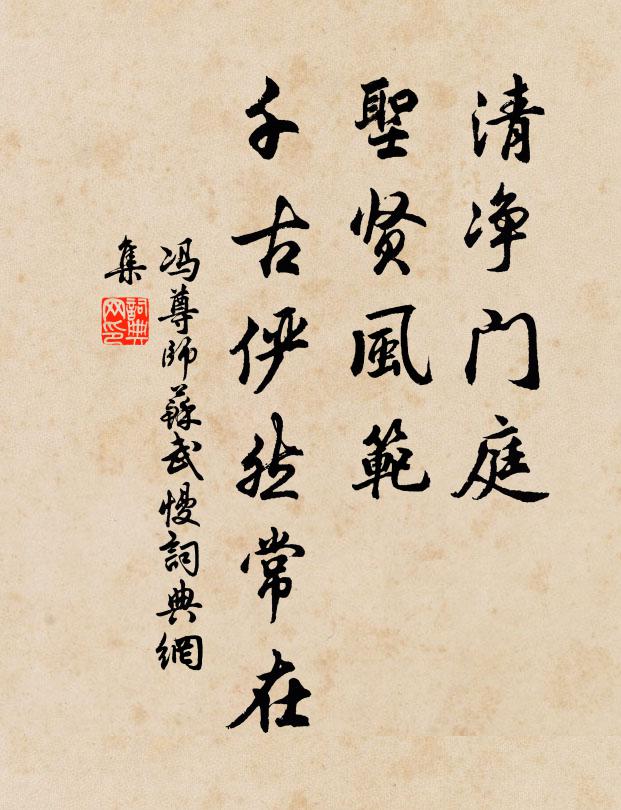 清净门庭
聖贤風範
千古俨然常在
冯尊師蘇武慢詞典網
集
詞典网印